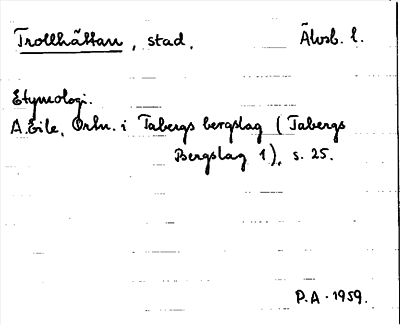 Trollhättan, stad. Älvsb. l.
Etymologi.
A. Eile, Ortn. i Tabergs bergslag (Tabergs
Bergslag 1), s. 25.
P.A. 1959.